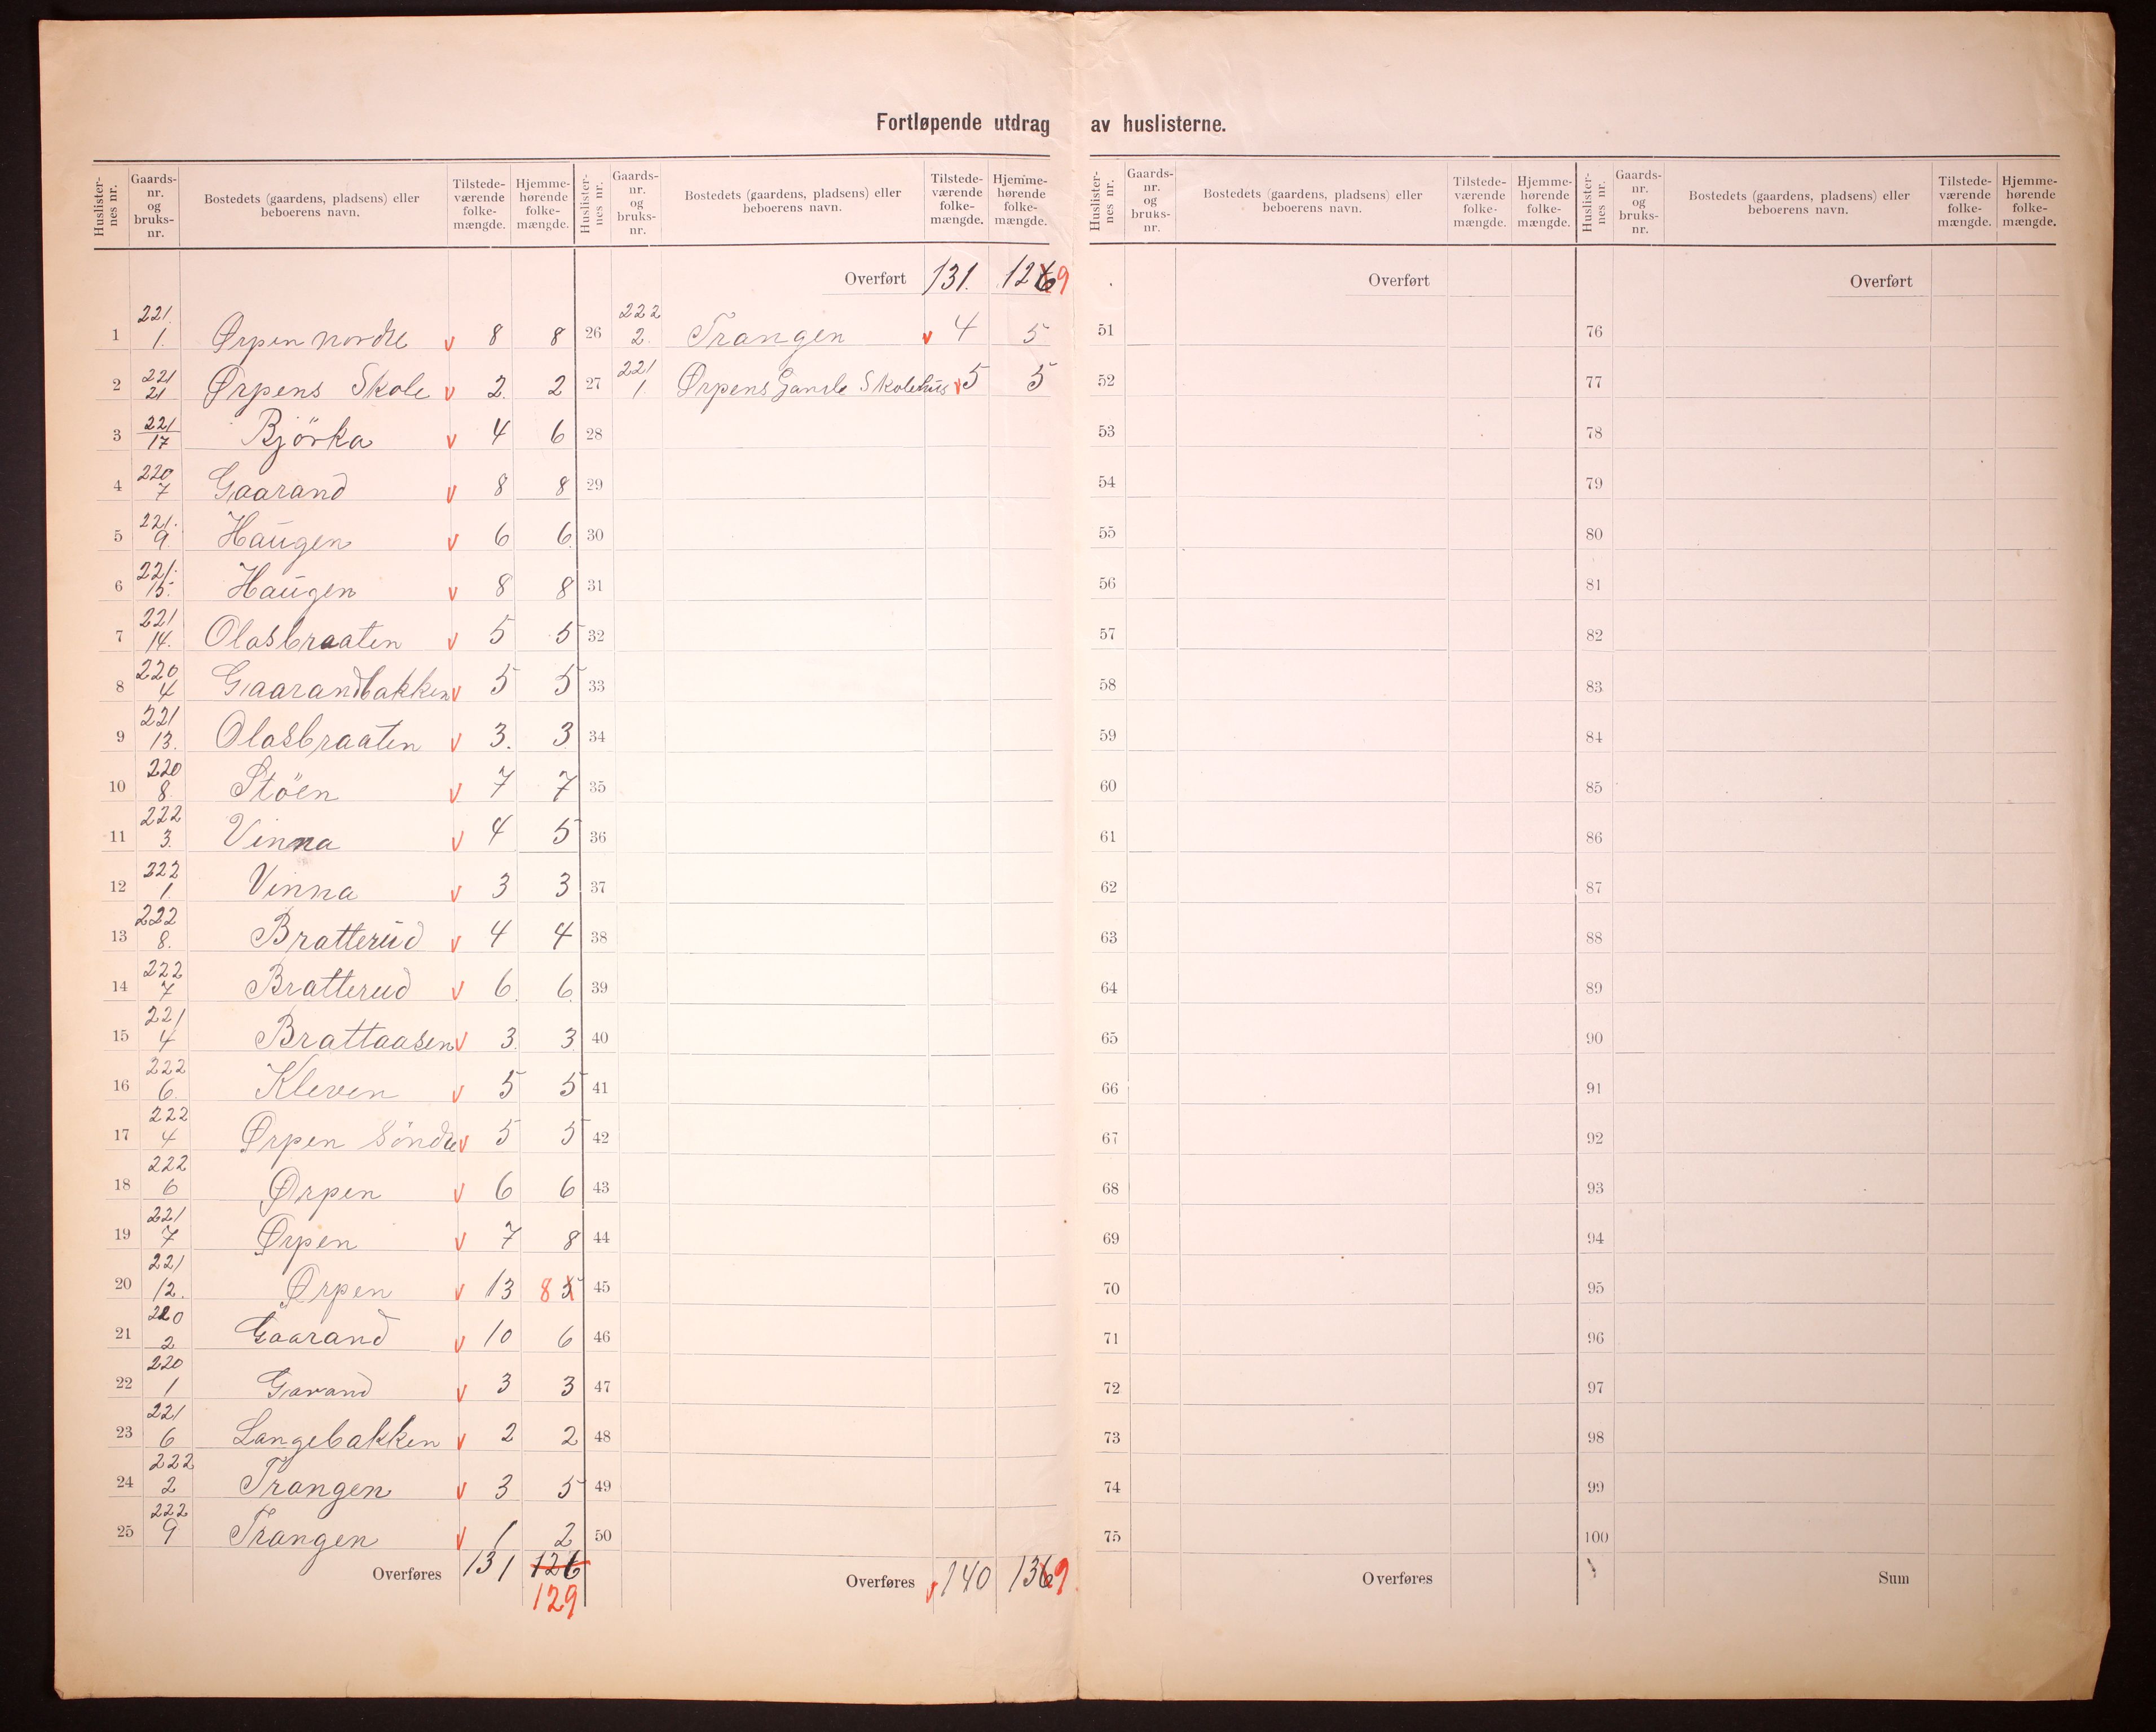 Fortløpende utdrag av huslisterne.
Huslister- nes nr. | Gaards- nr. og bruks- nr. | Bostedets (gaardens, pladsens) eller beboerens navn. | Tilstede- værende folke- mængde. | Hjemme- hørende folke- mængde.
1 221. 1. Ørpen nordre v 8 8
2 221 21 Ørpens Skole v 2. 2
3 221 17 Björka v 4 6
4 220 7 Gaarand v 8 8
5 221. 9. Haugen v 6 6.
6 221. 15. Haugen v 8 8
7 221 14. Olasbraaten v 5 5
8 220 4 Gaarandbakken v 5 5
9 221 13. Olasbraaten v 3. 3
10 220 8. Stöen v 7 7
11 222 3. Vinna v 4 5
12 222 1. Vinna v 3 3
13 222 8. Bratterud v 4 4
14 222 7 Bratterud v 6. 6.
15 221 4 Brattaasen v 3. 3
16 222 6. Kleven v 5 5
17 222 4 Ørpen Söndre v 5 5
18 222 6 Ørpen v 6 6
19 221 7 Ørpen v 7 8
20 221 12. Ørpen v 13 8 5
21 220 2 Gaarand v 10 6
22 220 1 Garand v 3 3
23 221 6 Langebakken v 2 2
24 222 2 Trangen v 3 5
25 222 9 Trangen v 1 2
Overføres 131 126
129
Huslister- nes nr. | Gaards- nr. og bruks- nr. | Bostedets (gaardens, pladsens) eller beboerens navn. | Tilstede- værende folke- mængde. | Hjemme- hørende folke- mængde.
Overført 131. 126 9
26 222 2. Trangen v 4 5
27 221 1. Ørpens Gamle Skolehus v 5 5
28
29
30
31
32
33
34
35
36
37
38
39
40
41
42
43
44
45
46
47
48
49
50
Overføres v 140 136 9.
Huslister- nes nr. | Gaards- nr. og bruks- nr. | Bostedets (gaardens, pladsens) eller beboerens navn. | Tilstede- værende folke- mængde. | Hjemme- hørende folke- mængde.
Overført
51
52
53
54
55
56
57
58
59
60
61
62
63
64
65
66
67
68
69
70
71
72
73
74
75
Overføres
Huslister- nes nr. | Gaards- nr. og bruks- nr. | Bostedets (gaardens, pladsens) eller beboerens navn. | Tilstede- værende folke- mængde. | Hjemme- hørende folke- mængde.
Overført
76
77
78
79
80
81
82
83
84
85
86
87
88
89
90
91
92
93
94
95
96
97
98
99
100
Sum